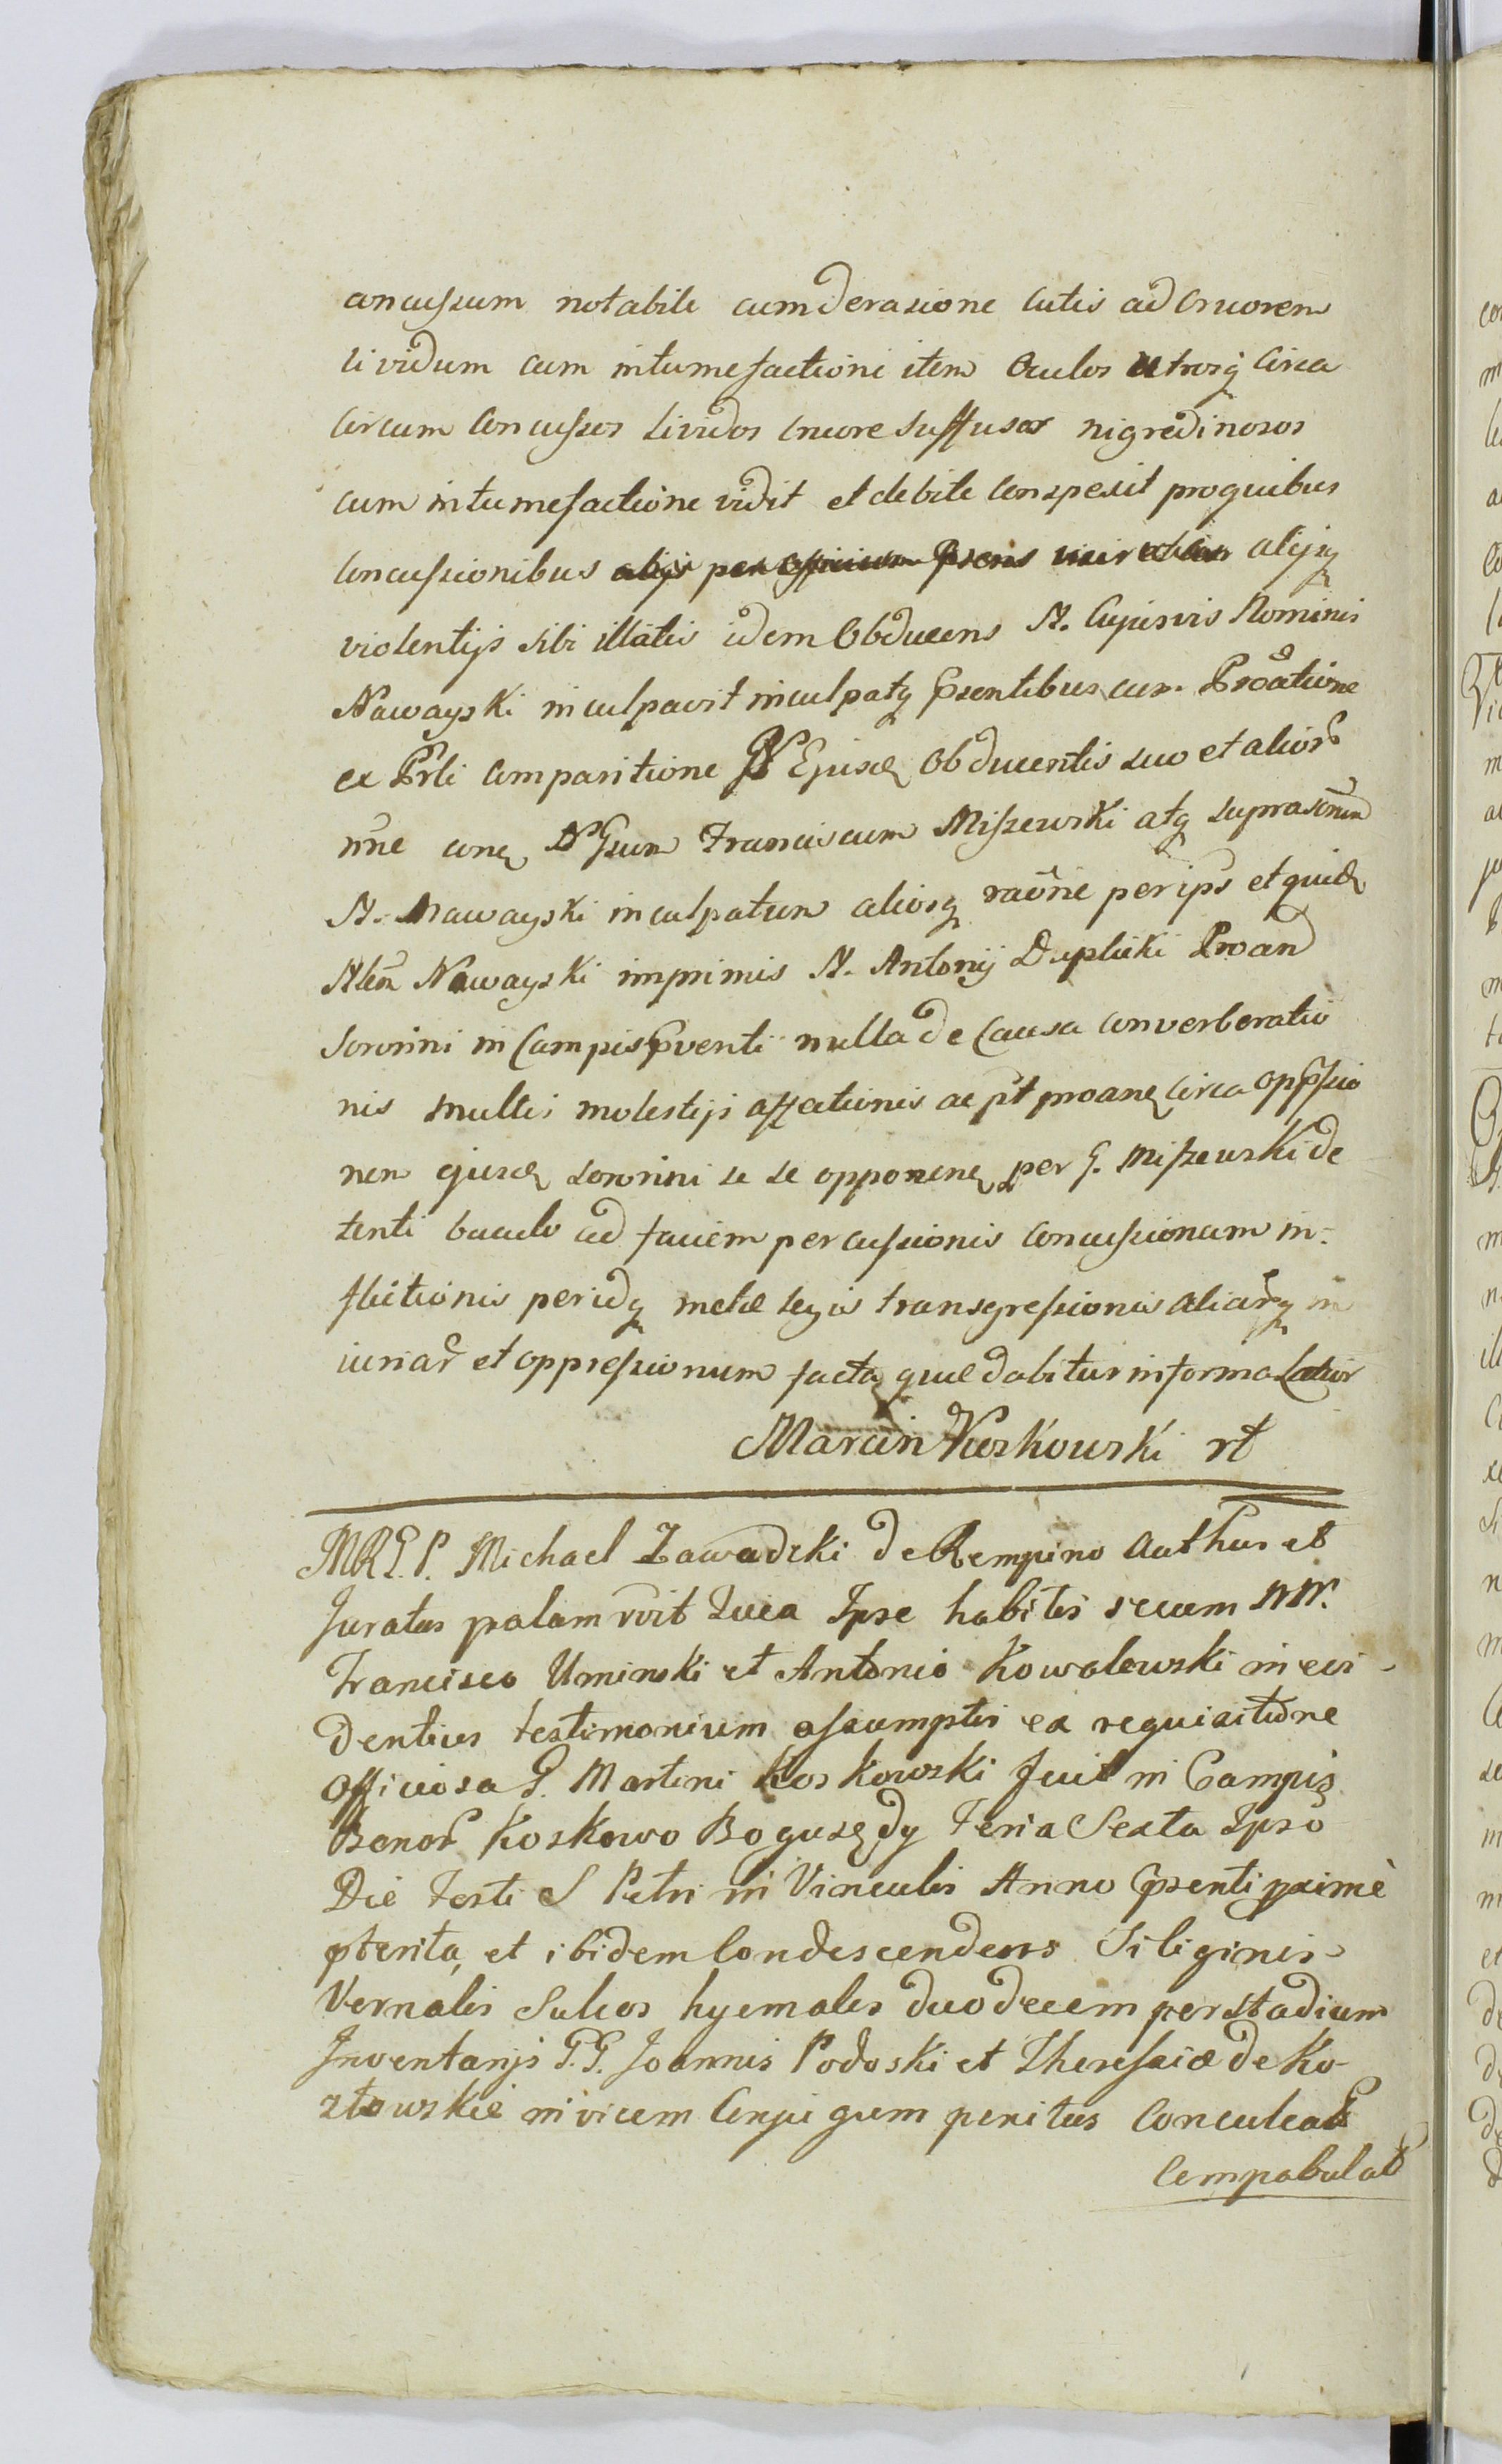 concussum notabile cum derasione cutis ad cruorem
lividum cum intumefactione item Oculos utrosq circa
circum concussos lividos cruore suffusos nigredinosos
cum intumefactione vidit et debite conspexit pro quibus
concussionibus alijs per alijsq
violentijs sibi illatis idem Obducens N. Cujusvis Nominis
Nawayski inculpavit inculpatq psentibus cum Proãtione
ex Prli comparitione Ejusd obducentis suo et alior
nne conq Gsum Franciscum Miszewski atq suprascrum
N. Nawayski inculpatum aliosq raõne per ips et quid
Nawayski imprimis N. Antonij Duplicki Proan
Sororini in Campis pventi nulla de Causa converberatio
nis multis molestijs affectionis ac pt proaneq circa oppssio
nem ejusd sororini se se opponenq per G. Miszewski de
tenti baculo ad faciem percussionis concussionum in-
flictionis per idq metae legis transgressionis aliarq in
iuriar et oppressionum facta quae dabitur in forma Latior
Marcin Koskowski rt
MRGP. Michael Zawadzki de Rempino Authus et
Juratus palam rvit Quia Ipse habitis secum NN.
Francisco Uminski et Antonio Kowalewski in evi-
dentius testimonium assumptis ex requisitione
Officiosa G. Martini Koskowski fuit in Campis
Bonor Koskowo Bogusędy Feria Sexta Ipso
Die Festi S Petri in Vinculis Anno psenti pximè
pterita, et ibidem Condescendens Siliginis
Vernalis Sulcos hyemales duodecem per Stadium
Inventarijs G.G. Joannis Podoski et Theressiae de Ko-
złowskie invicem Conjugum penitus Conculcat
Compabulat